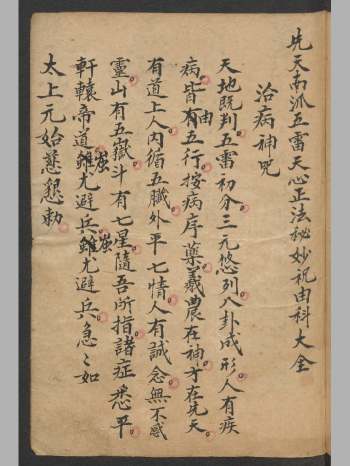 先天南派五雷天心正法秘妙祝由科大全
治病神咒
天地既判五雷初分三元悠列八卦成形人有疾
病皆有由五行按病序藥羲農在袖方在先天
有道上人内循五臟外平七情人有誠念無不感
靈山有五嶽斗有七星隨吾所指諸症悉平
軒轅帝道雖蚩尤避兵雖蚩尤避兵急〻如
太上元始慈懇勅